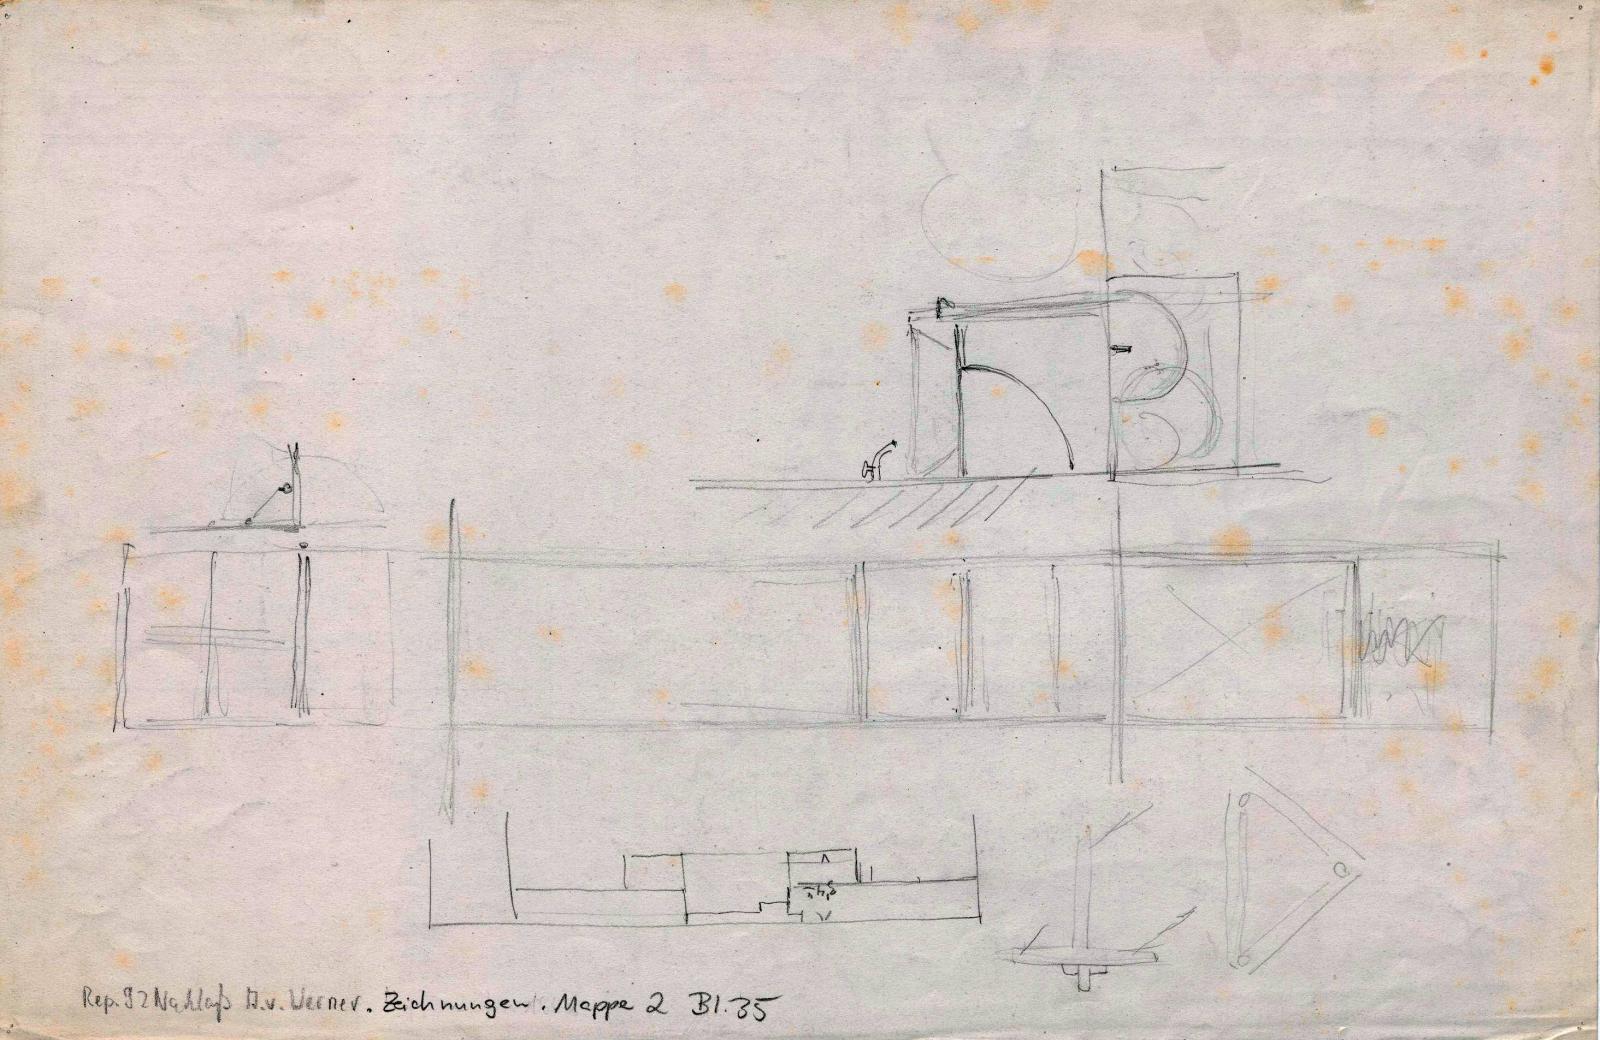 Rep. 92 Nachlaß A.v. Werner. Zeichnungen. Mappe 2 Bl. 35